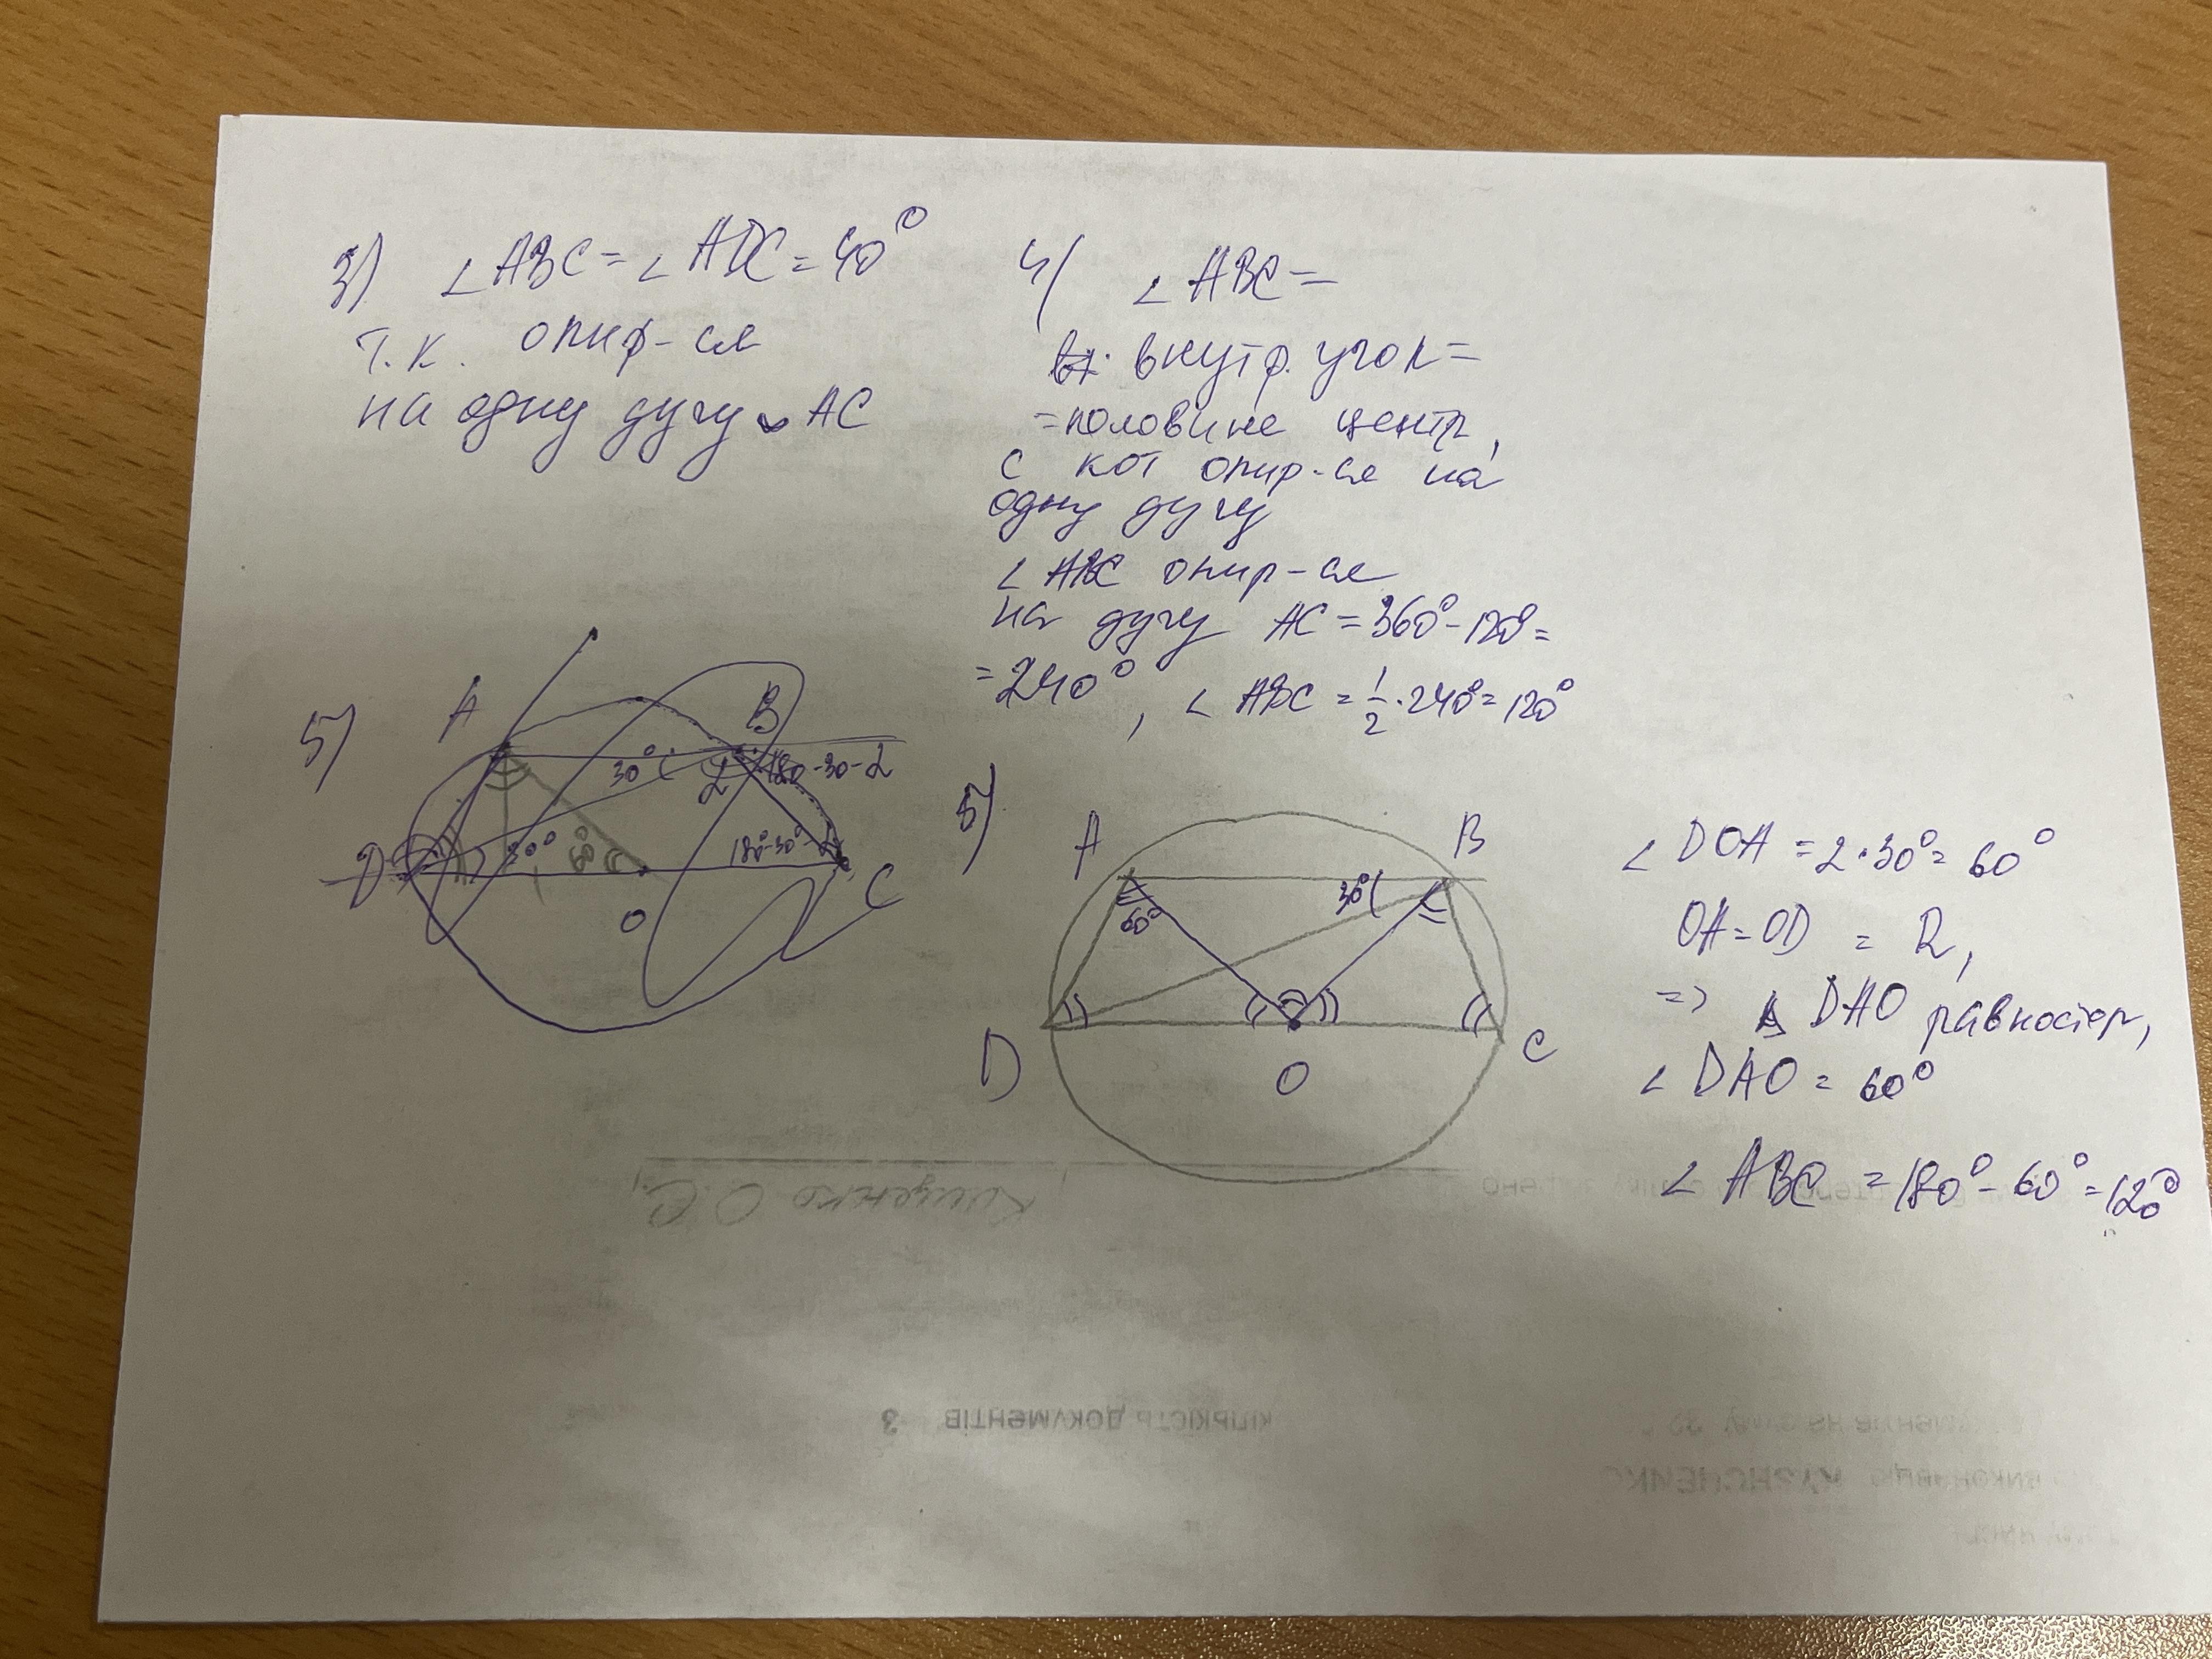 3) ∠ABC = ∠ADC = 40°
т.к. опир-ся
на одну дугу ◡ AC
4) ∠ABC =
внутр. угол =
= половине центр,
с кот опир-ся на
одну дугу
∠ABC опир-ся
на дугу AC = 360° - 120° =
= 240°, ∠ABC = 1/2 · 240° = 120°
5)
A
B
30°
α
180-30-α
D
30°
60°
180°-30°-α
C
O
5)
A
B
60°
30°
D
O
C
∠DOA = 2·30° = 60°
OA = OD = R,
=> Δ DAO равностор,
∠DAO = 60°
∠ABC = 180° - 60° = 120°
Кищенко О.Є.,
КІЛЬКІСТЬ ДОКУМЕНТІВ 3